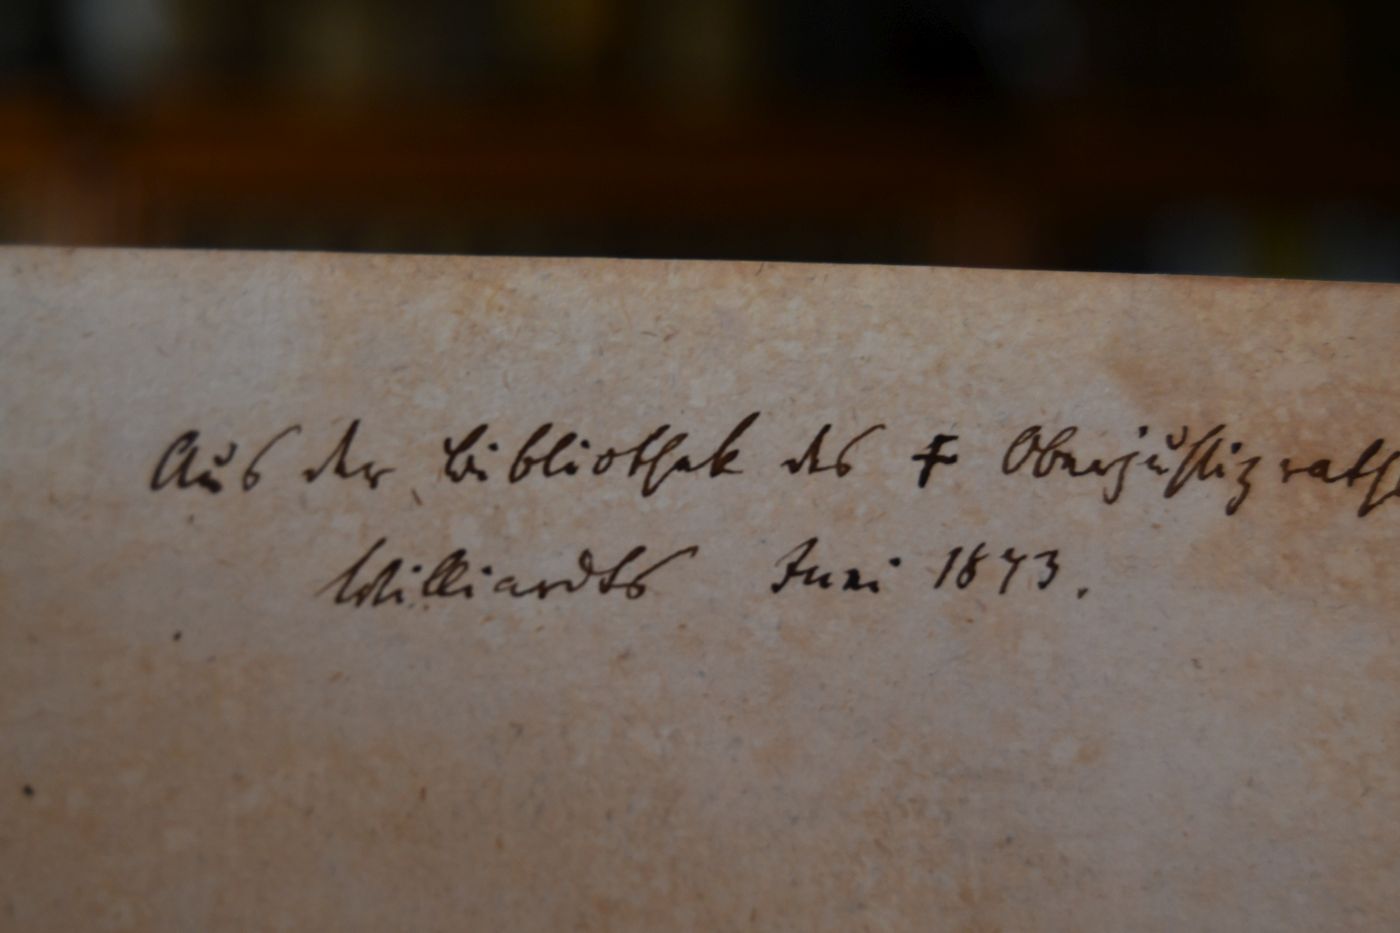 Aus der Bibliothek des † Oberjustizraths
Williardts Juni 1873.